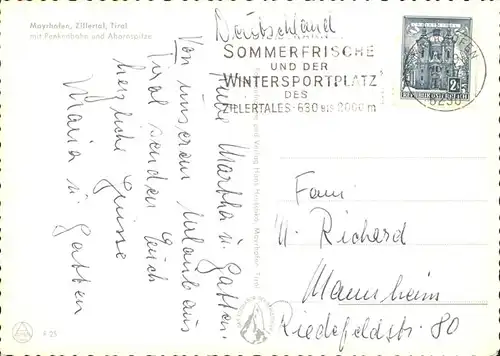 Mayrhofen, Zillertal, Tirol
mit Penkenbahn und Ahornspitze
Deutschland
SOMMERFRISCHE
UND DER
WINTERSPORTPLATZ
DES
ZILLERTALES-630 BIS 2000 m
6290
Liebe Martha u. Gatten.
Von unserem Urlaub aus
Tirol senden Euch
herzliche Grüsse
Maria u. Gatten
Fam.
Richard
Mannheim
Riedfeldstr. 80
und Verlag Hans
Mayrhofen, Tirol
REPUBLIK ÖSTERREICH
F 25